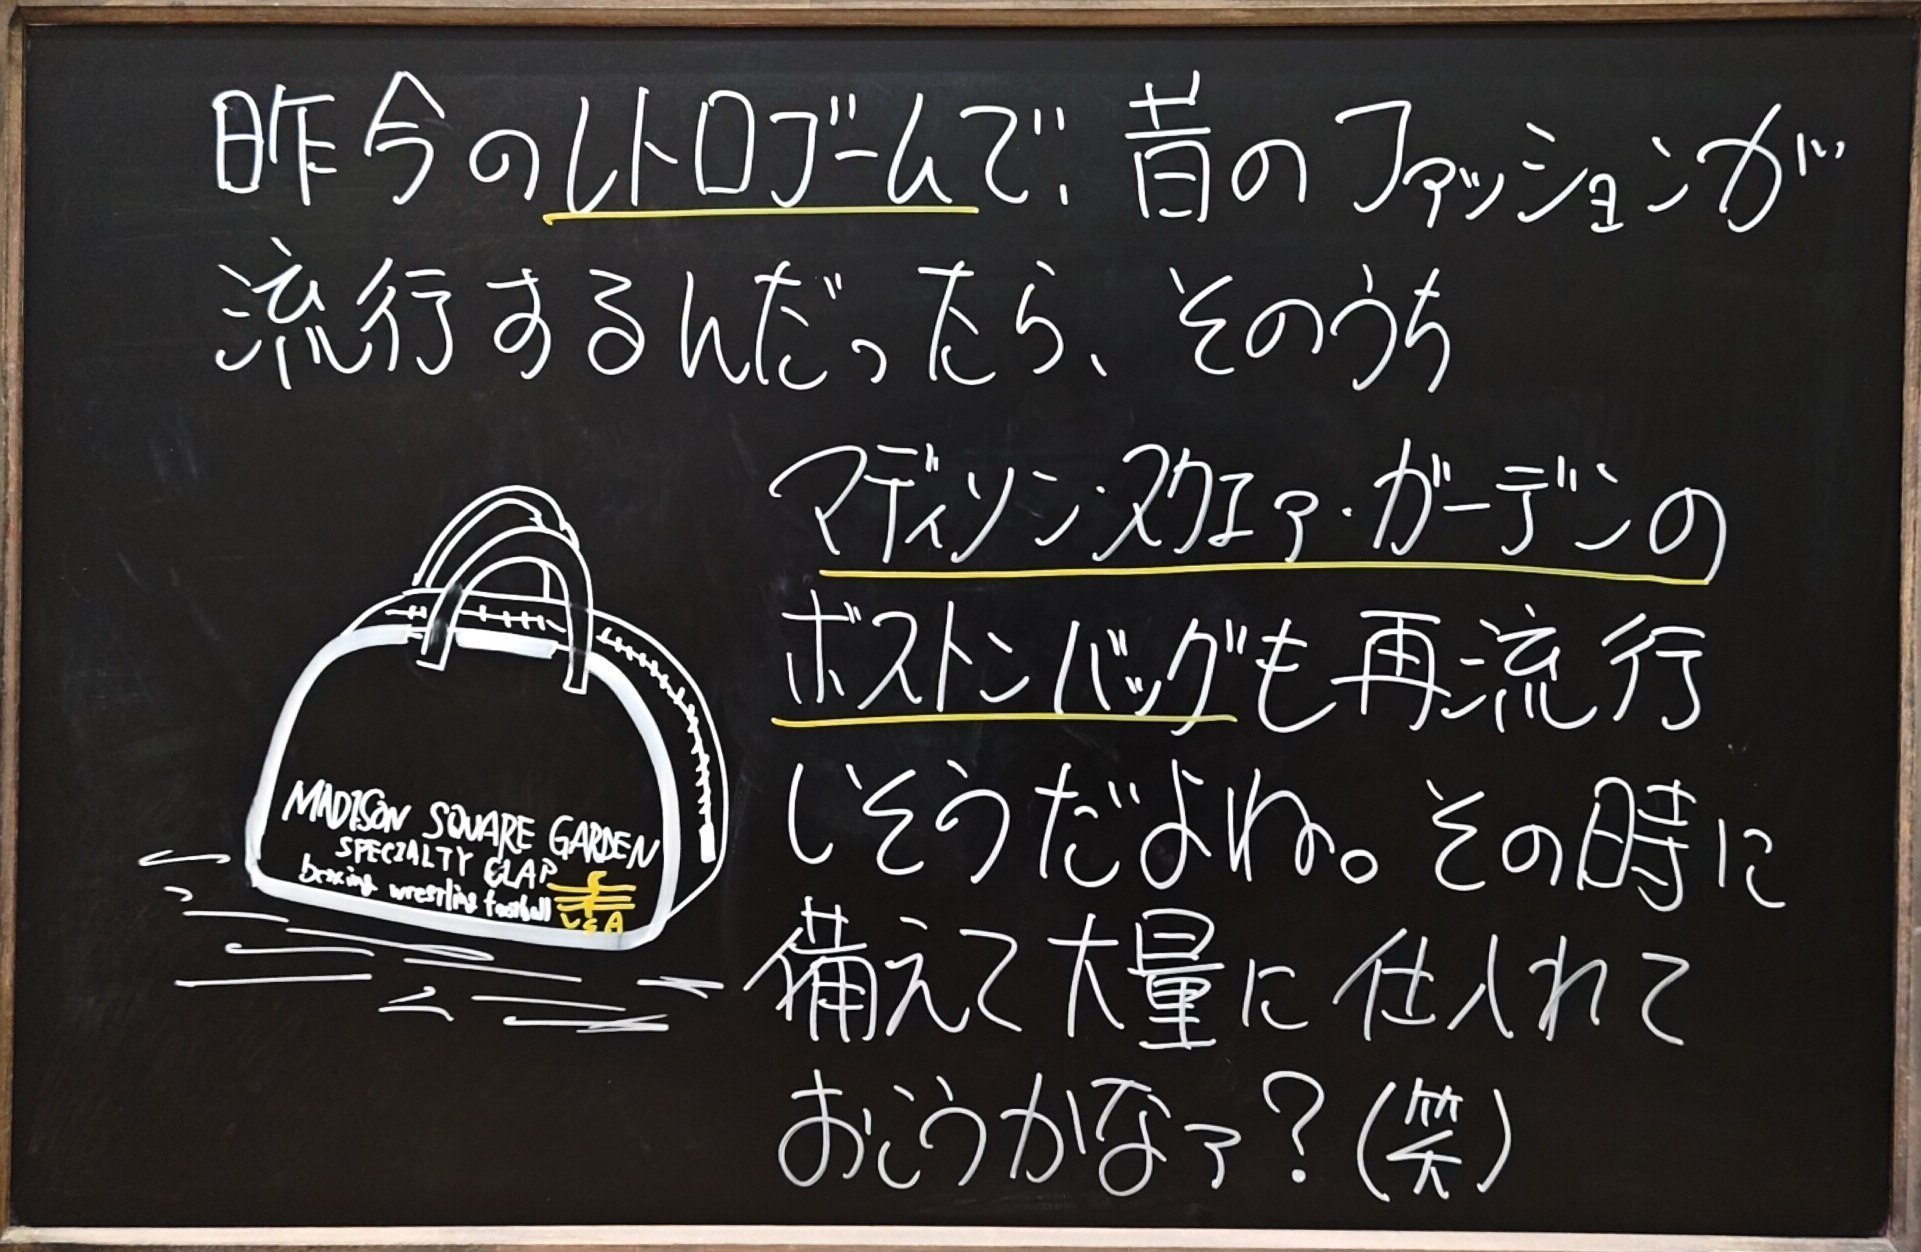 昨今のレトロブームで、昔のファッションが
流行するんだったら、そのうち
マディソン・スクエァ・ガーデンの
ボストンバッグも再流行
しそうだよね。その時に
備えて大量に仕入れて
おこうかなァ?(笑)
MADISON SQUARE GARDEN
SPECIALTY CLAP
boxing wrestling football
USA